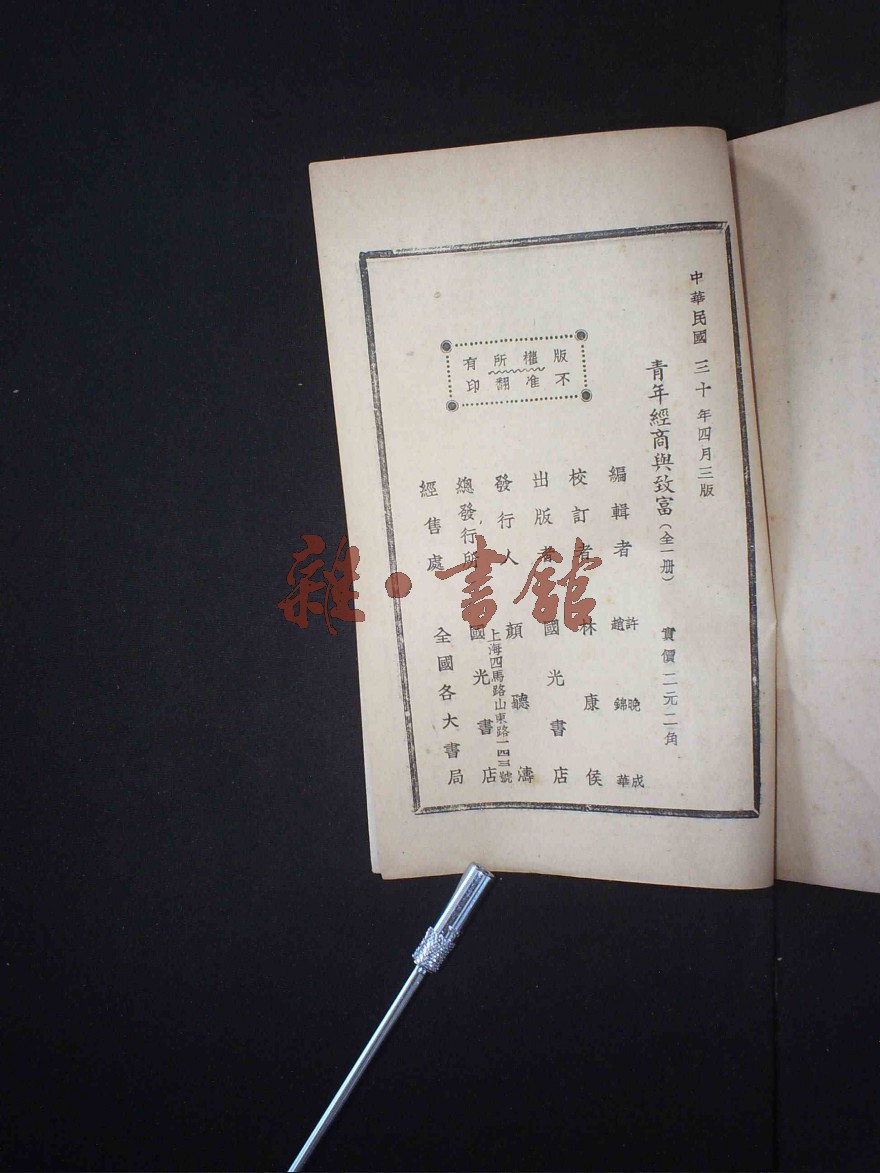 中華民國三十年四月三版
青年經商與致富（全一册）
實價二元二角
編輯者 許晚成 趙錦華
校訂者 林康侯
出版者 國光書店
發行人 顏聽濤
總發行所 上海四馬路山東路一四三號 國光書店
經售處 全國各大書局
版權所有
不准翻印
雜·書館